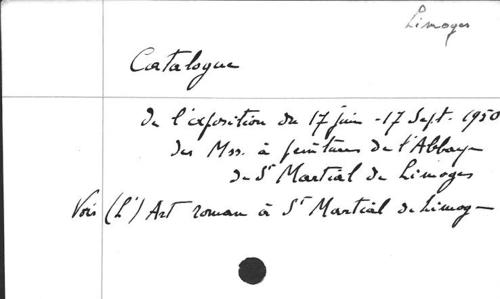 Limoges
Catalogue
de l'exposition du 17 juin - 17 Sept. 1950
des Mss. à peintures de l'Abbaye
de St Martial de Limoges
Vois (L') Art roman à St Martial de Limoges